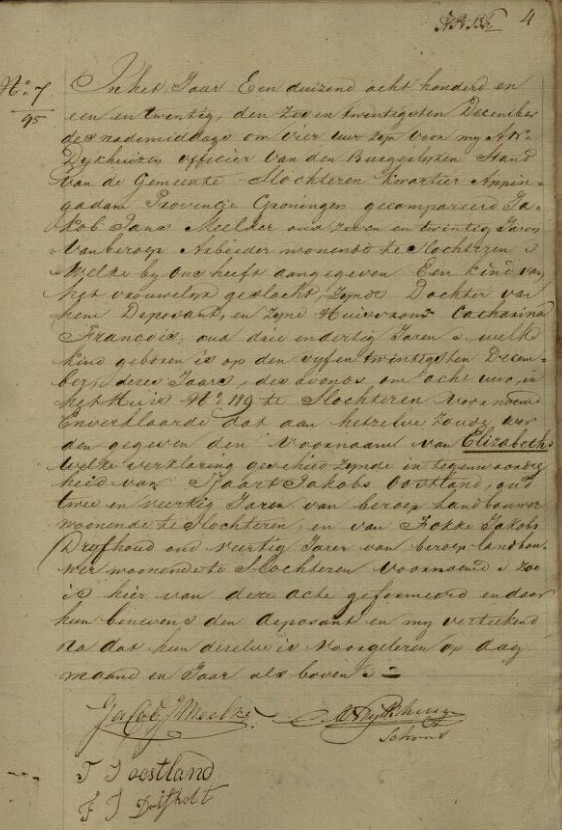 4
No 7
95
In het Jaar Een duizend acht honderd en
een en twintig, den zes en twintigsten December
des nademiddags om vier uur zyn voor my A W
Dykhuizen officier van den Burgerlyken Stand
van de Gemeente Slochteren kwartier Appin-
gadam Provintje Groningen gecompareerd Ja-
kob Jans Meelker oud zeven en twintig Jaren
van beroep Arbieder wonende te Slochteren
welke by ons heeft aangegeven Een kind van
het vrouwelyk geslacht, zynde Dochter van
hem Deposant, en zyne Huisvrouw Catharina
Francois, oud drie en dertig Jaren welk
kind geboren is op den vyf en twintigsten Decem-
ber, dezes Jaars, des avonds, om acht uur, in
het Huis No 119 te Slochteren voornoemd
En verklaarde dat aan hetzelve zoude wor
den gegeven den Voornaam van Elizabeth
welke verklaring geschied zynde in tegenwoordig
heid van Tjaart Jakobs Oostland, oud
twee en veertig Jaren van beroep Landbouwer
woonende te Slochteren, en van Fokke Jakobs
Dryfhoud oud veertig Jaren van beroep landbou-
wer woonende te Slochteren voornoemd zoo
is hier van deze acte geformeerd en door
hun benevens den deposant en my vertekend
na dat hun dezelve is voorgelezen op dag
maand en Jaar als boven
Jacob J Meelker
A W Dykhuizen
Schout
T J oostland
F J Drijfholt